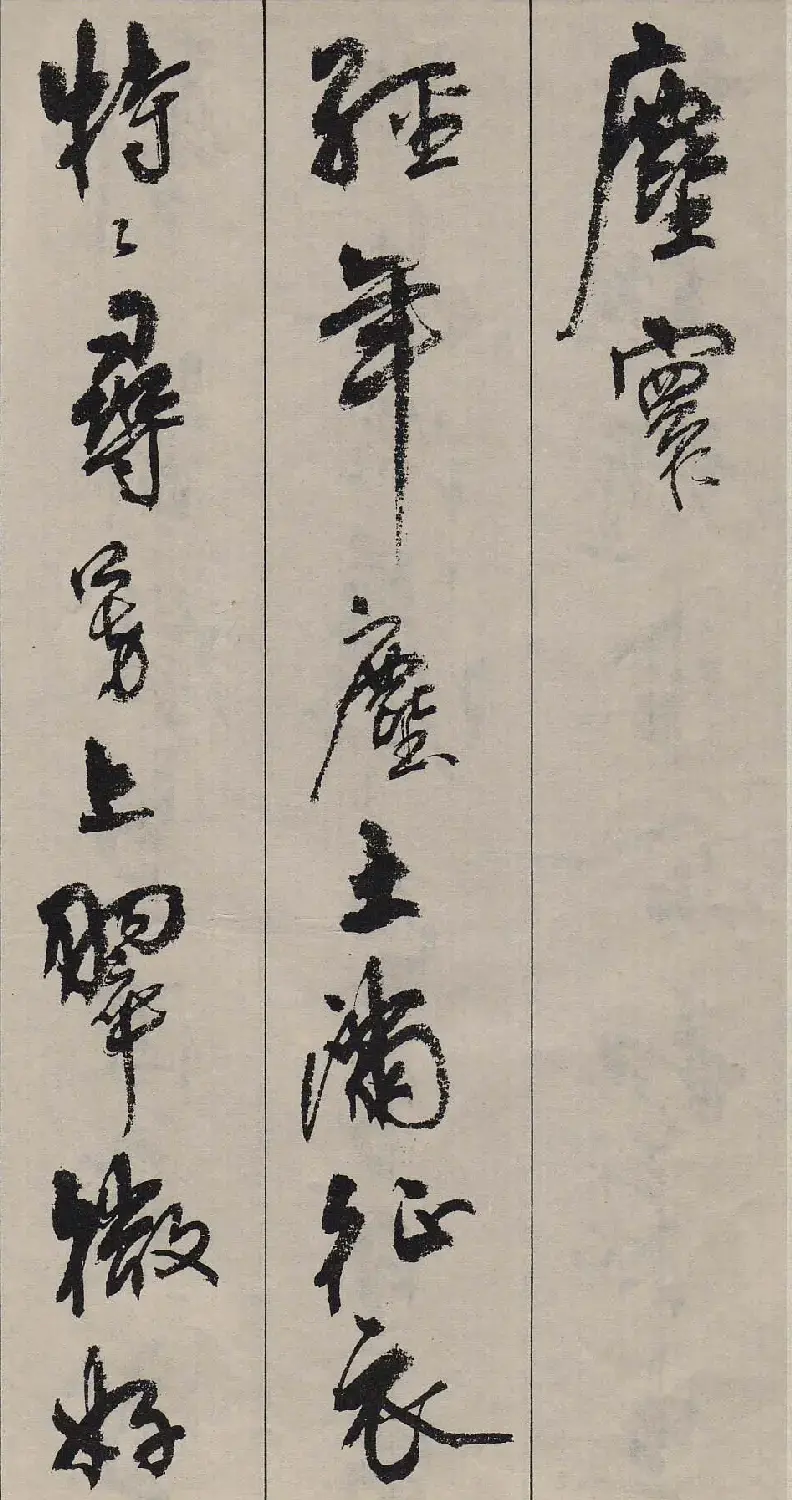 塵寰
經年塵土滿征衣
特々尋芳上翠微好